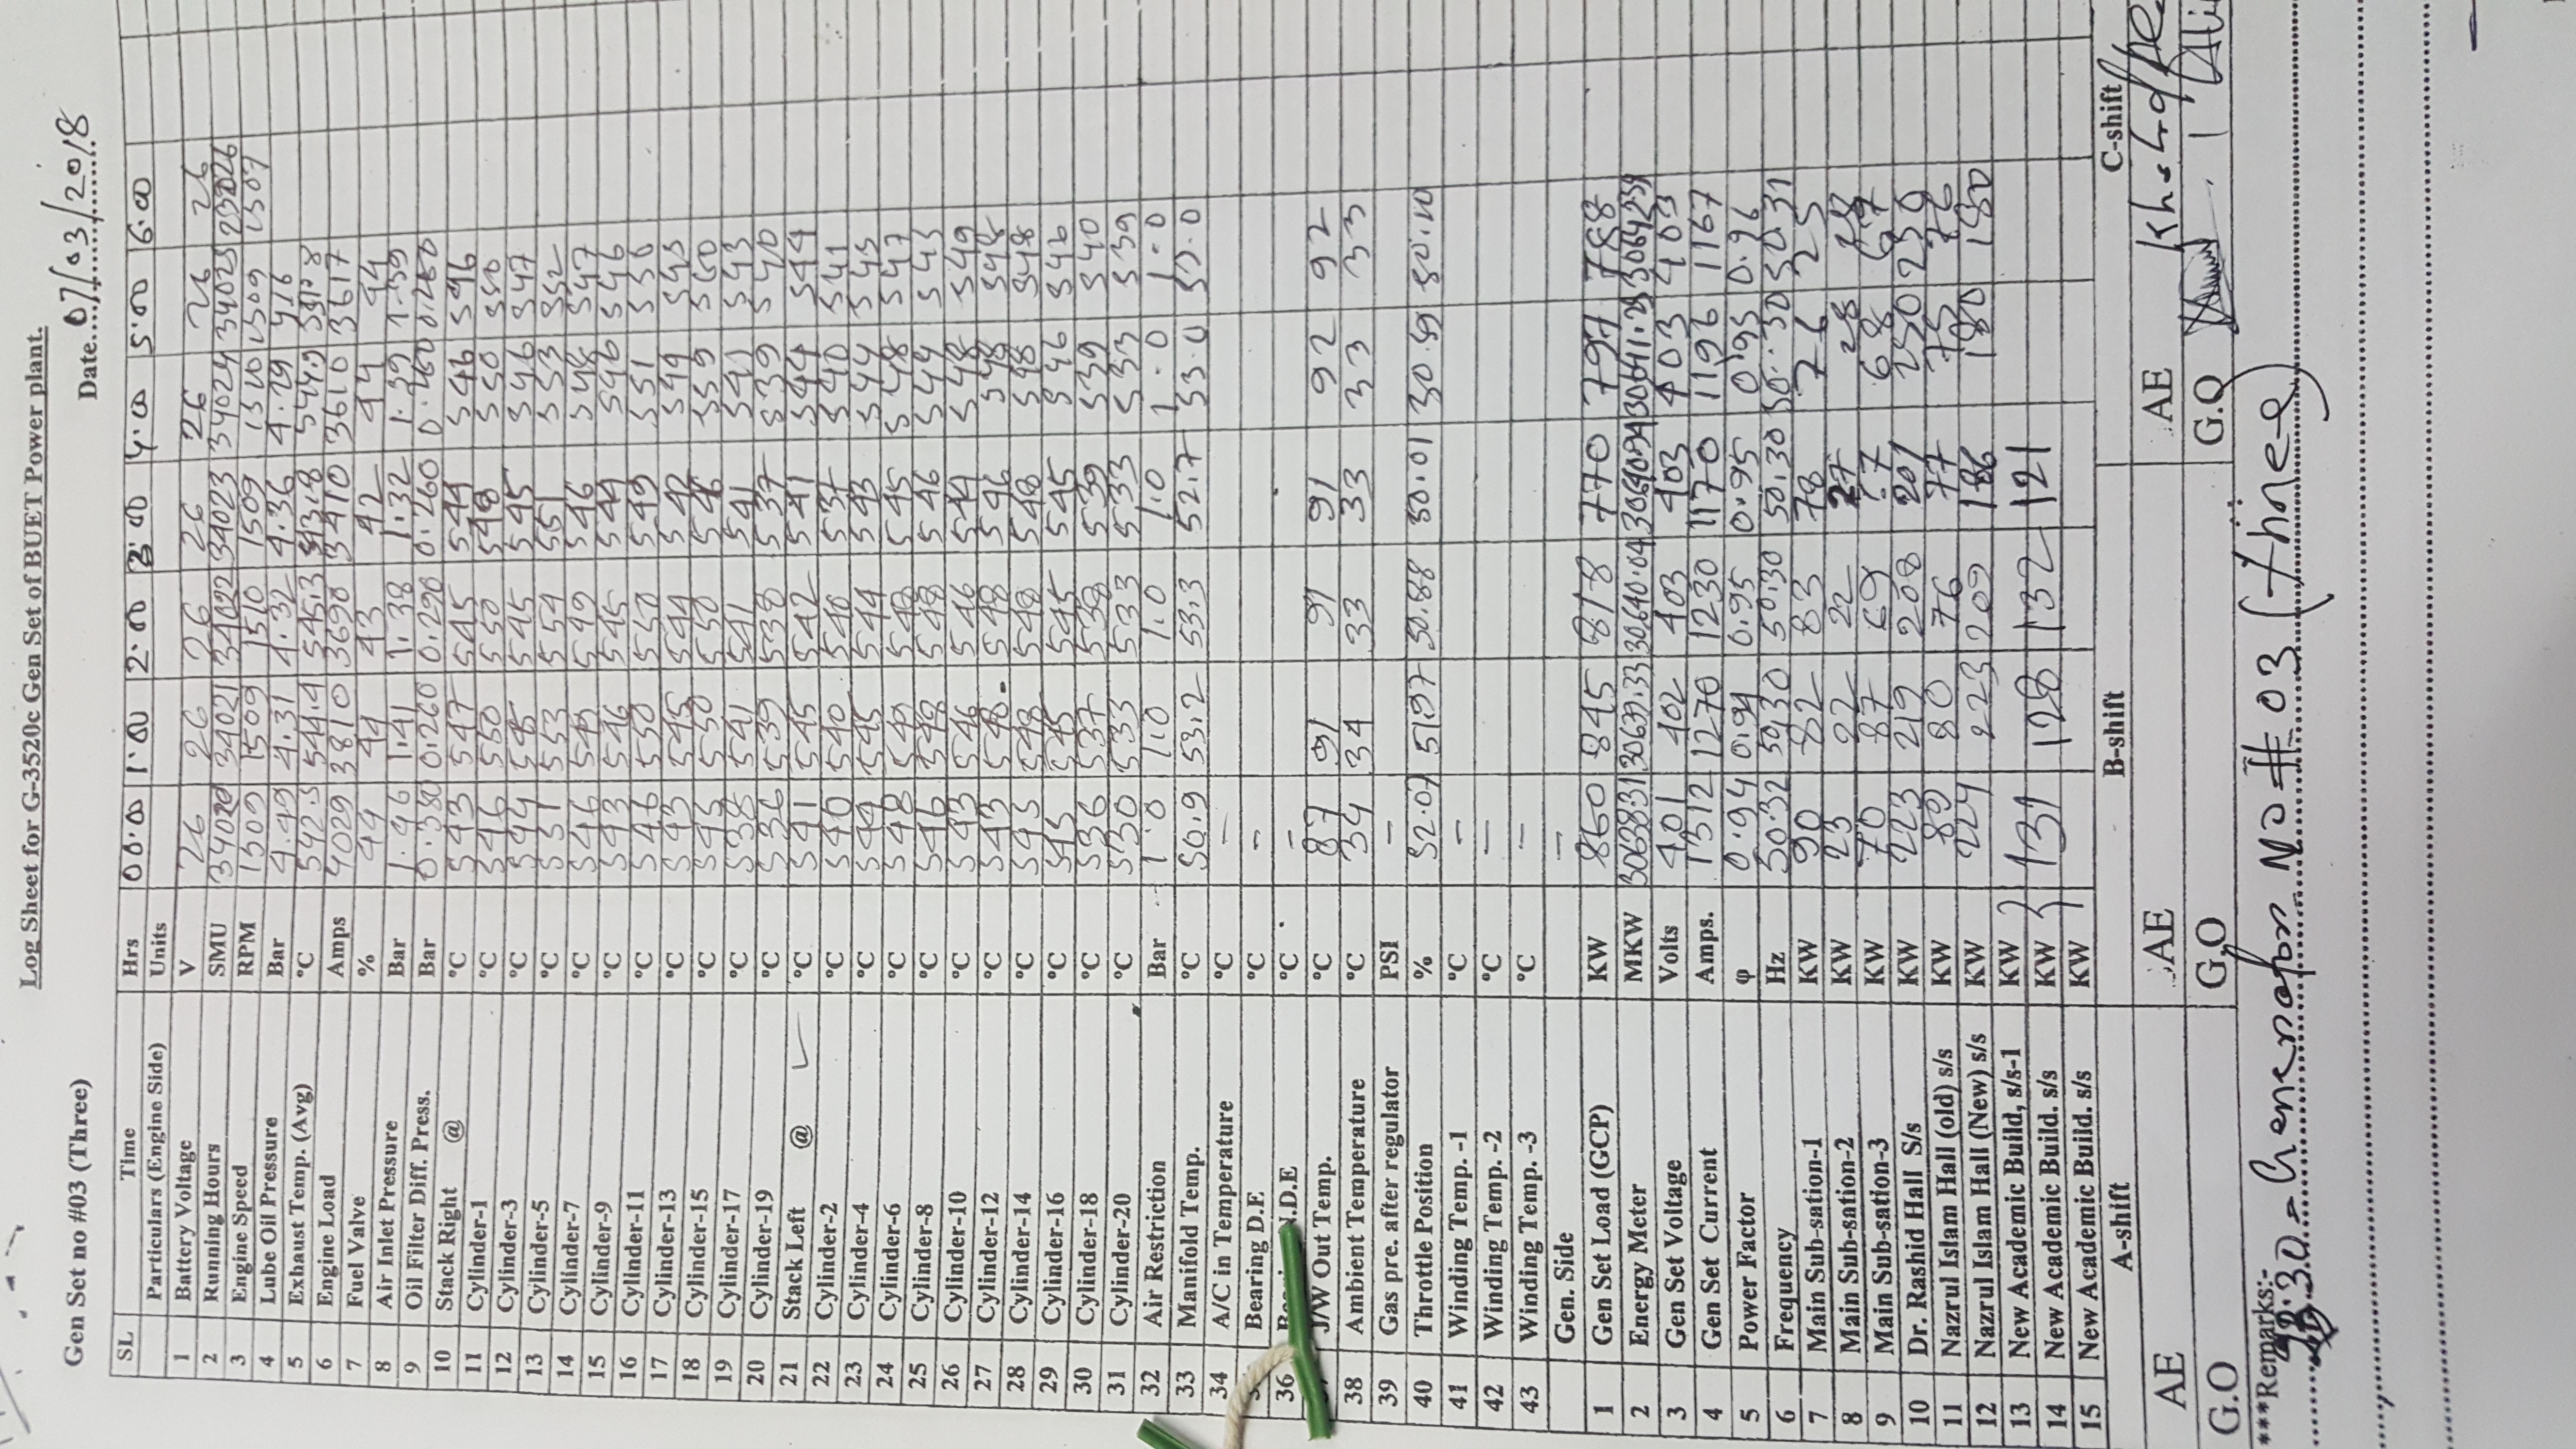 Log Sheet for G-3520c Gen Set of BUET Power plant.
Gen Set no #03 (Three) Date....07/03/2018
SL Time Hrs 00:00 1:00 2:00 3:00 4:00 5:00 6:00
Particulars (Engine Side) Units
1 Battery Voltage V 26 26 26 26 26 26 26
2 Running Hours SMU 34020 34021 34022 34023 34024 34025
3 Engine Speed RPM 1509 1509 1510 1509 1510 1509 1507
4 Lube Oil Pressure Bar 4.49 4.31 4.32 4.36 4.29 416
5 Exhaust Temp. (Avg) °C 542.5 544.4 545.3 543.8 544.9
6 Engine Load Amps 4029 3810 3690 3410 3610 3617
7 Fuel Valve % 44 44 43 42 44 44
8 Air Inlet Pressure Bar 1.46 1.41 1.38 1.32 1.39 1.39
9 Oil Filter Diff. Press. Bar 0.380 0.260 0.290 0.260 0.260 0.260
10 Stack Right @ °C 543 547 545 544 546 546
11 Cylinder-1 °C 546 550 550 548 550 550
12 Cylinder-3 °C 544 545 545 545 546 547
13 Cylinder-5 °C 551 553 554 551 553 552
14 Cylinder-7 °C 546 549 549 546 548 547
15 Cylinder-9 °C 543 546 545 544 546 546
16 Cylinder-11 °C 546 550 550 549 551 550
17 Cylinder-13 °C 543 545 544 542 544 545
18 Cylinder-15 °C 545 550 550 546 559 560
19 Cylinder-17 °C 538 541 541 541 541 543
20 Cylinder-19 °C 536 539 538 537 539 540
21 Stack Left @ ✓ °C 541 545 542 541 544 544
22 Cylinder-2 °C 540 540 540 537 540 541
23 Cylinder-4 °C 544 545 544 543 544 545
24 Cylinder-6 °C 548 549 548 545 548 547
25 Cylinder-8 °C 546 548 548 546 544 545
26 Cylinder-10 °C 543 546 546 544 548 549
27 Cylinder-12 °C 543 548 548 546 548 548
28 Cylinder-14 °C 545 548 548 548 548 548
29 Cylinder-16 °C 545 545 545 545 546 546
30 Cylinder-18 °C 536 537 538 539 539 540
31 Cylinder-20 °C 530 533 533 533 533 539
32 Air Restriction Bar 1.0 1.0 1.0 1.0 1.0 1.0
33 Manifold Temp. °C 50.9 53.2 53.3 52.7 53.0 53.0
34 A/C in Temperature °C —
Bearing D.E °C —
36 N.D.E °C —
J/W Out Temp. °C 87 91 91 91 92 92
38 Ambient Temperature °C 34 34 33 33 33 33
39 Gas pre. after regulator PSI —
40 Throttle Position % 52.07 51.97 50.88 50.01 50.59 50.10
41 Winding Temp. -1 °C —
42 Winding Temp. -2 °C —
43 Winding Temp. -3 °C —
Gen. Side —
1 Gen Set Load (GCP) KW 860 845 818 770 797 788
2 Energy Meter MKW 30638.31 30639.33 30640.04 30640.94
3 Gen Set Voltage Volts 401 402 403 403 403 403
4 Gen Set Current Amps. 1312 1270 1230 1170 1196 1167
5 Power Factor φ 0.94 0.94 0.95 0.95 0.95 0.96
6 Frequency Hz 50.32 50.30 50.30 50.30 50.30 50.31
7 Main Sub-sation-1 KW 90 82 83 78 76 25
8 Main Sub-sation-2 KW 23 22 22 27 28 28
9 Main Sub-sation-3 KW 70 87 69 67 68 67
10 Dr. Rashid Hall S/s KW 223 219 208 201 250 250
11 Nazrul Islam Hall (old) s/s KW 80 80 76 77 75 76
12 Nazrul Islam Hall (New) s/s KW 224 223 209 186 180 180
13 New Academic Build, s/s-1 KW
14 New Academic Build. s/s KW 131 128 132 121
15 New Academic Build. s/s KW
A-shift B-shift C-shift
AE AE AE
G.O G.O G.O
***Remarks:-
Generator No # 03 (three)